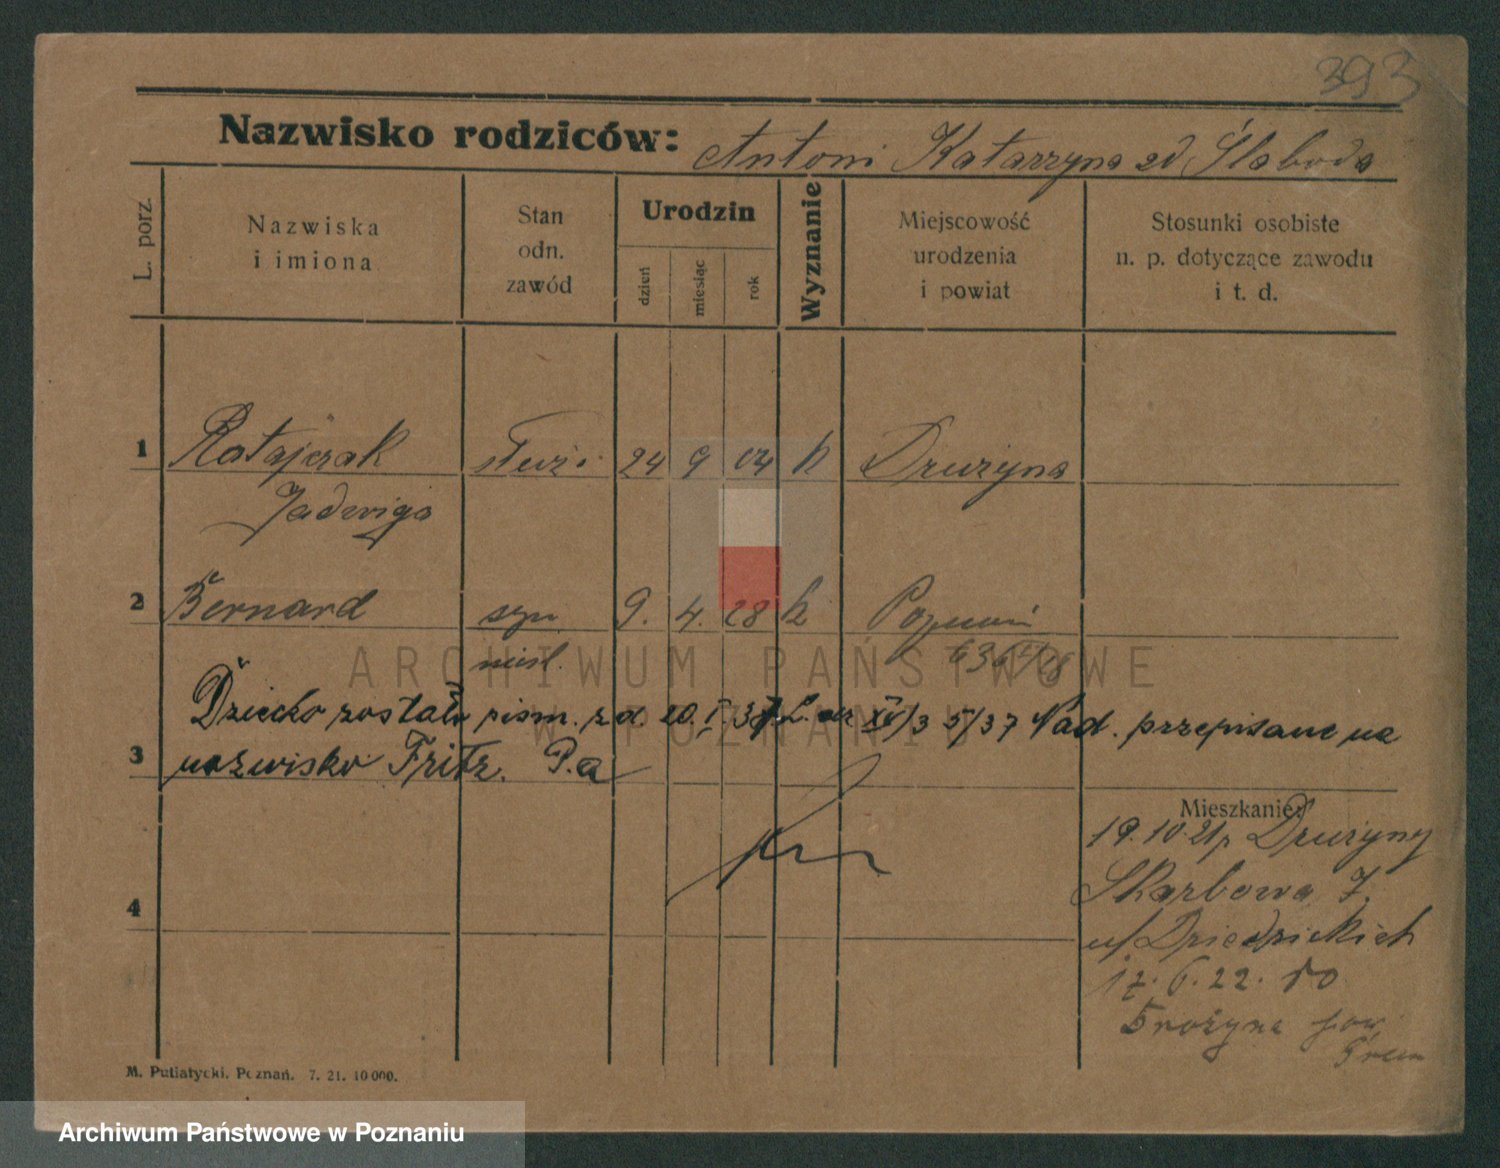 393
Nazwisko rodziców: Antoni Katarzyna zd Słaboda
L. porz.
Nazwiska i imiona
Stan odn. zawód
Urodzin
dzień
miesiąc
rok
Wyznanie
Miejscowość urodzenia i powiat
Stosunki osobiste n. p. dotyczące zawodu i t. d.
1 Ratajczak służ. 24 9 04 k Drużyna
Jadwiga
2 Bernard syn 9. 4. 28 k Poznań
nieśl.
Dziecko zostało pism. z d. 20. I. 37. L. dz. 35/37 Nad. przepisane na
3 nazwisko Fritz. P.a
Mieszkanie:
19.10.21 p Drużyny
Skarbowa 7.
u/Dziedzickich
17. 6. 22. do
4
pow.
Śrem
M. Putiatycki. Poznań. 7. 21. 10 000.
ARCHIWUM PAŃSTWOWE
W POZNANIU
Archiwum Państwowe w Poznaniu